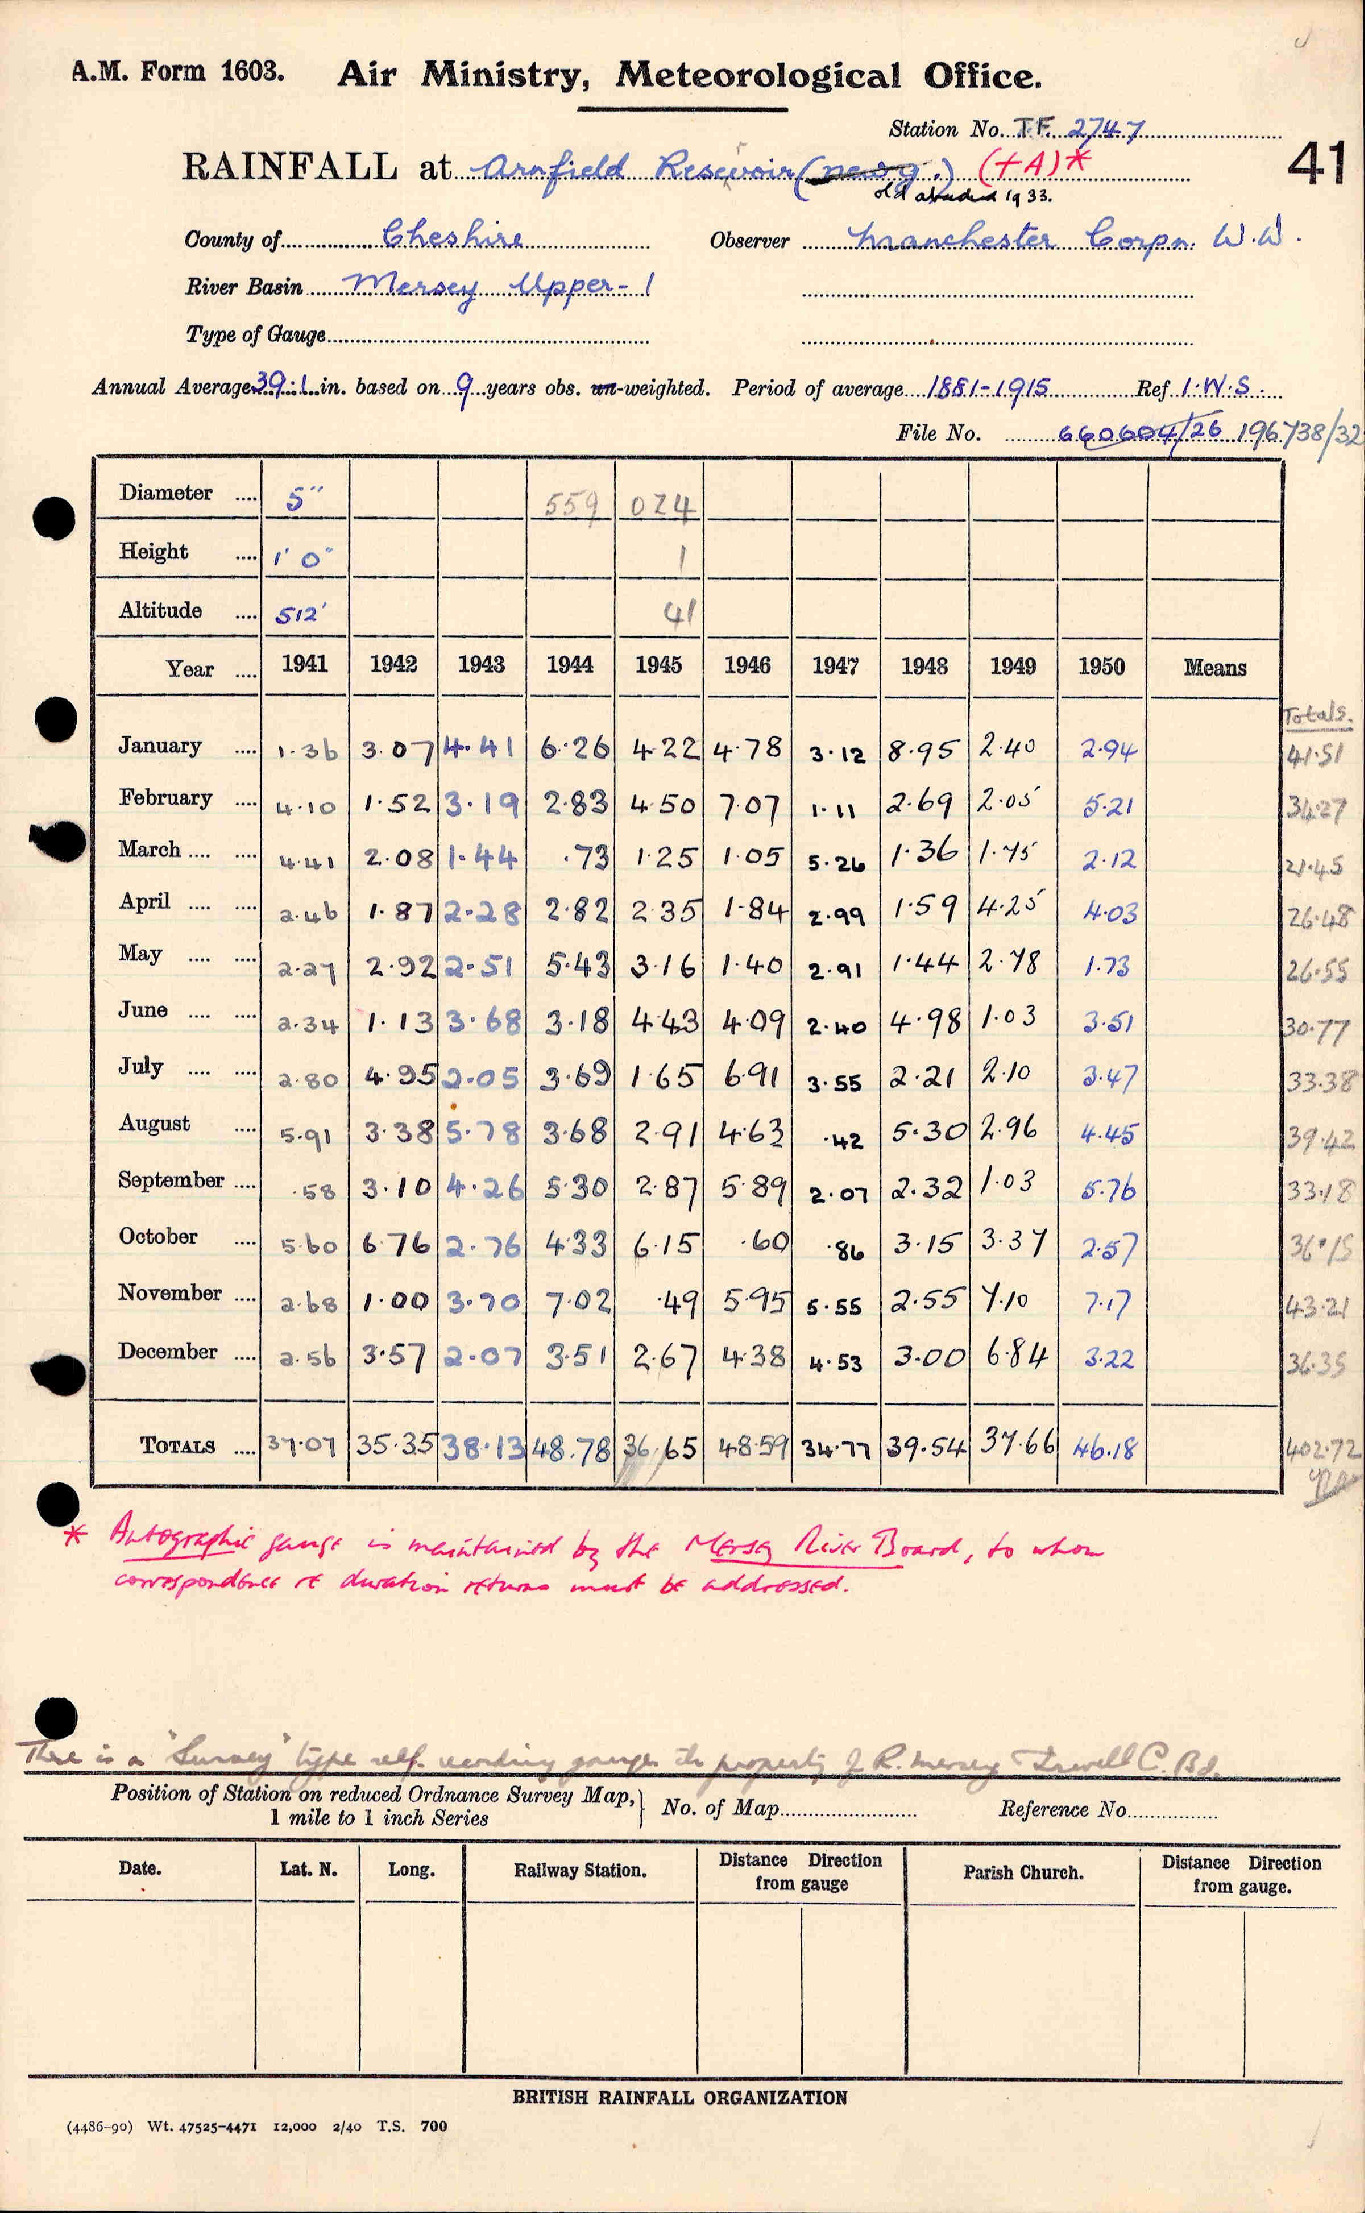 A.M. Form 1603. Air Ministry, Meteorological Office.
Station No. T.F. 2747
RAINFALL at Arnfield Resevoir (new g.) (+A)*
old abandd 1933.
41
County of Cheshire Observer Manchester Corpn. W.W.
River Basin Mersey Upper - 1
Type of Gauge
Annual Average 39.1 in. based on 9 years obs. un-weighted. Period of average 1881-1915 Ref I.W.S.
File No. 660604/26 196738/32
Diameter .... 5" 559 024
Height .... 1' 0" 1
Altitude .... 512' 41
Year .... 1941 1942 1943 1944 1945 1946 1947 1948 1949 1950 Means
Totals.
January .... 1.36 3.07 4.41 6.26 4.22 4.78 3.12 8.95 2.40 2.94 41.51
February .... 4.10 1.52 3.19 2.83 4.50 7.07 1.11 2.69 2.05 5.21 34.27
March .... .... 4.41 2.08 1.44 .73 1.25 1.05 5.26 1.36 1.75 2.12 21.45
April .... .... 2.46 1.87 2.28 2.82 2.35 1.84 2.99 1.59 4.25 4.03 26.48
May .... .... 2.27 2.92 2.51 5.43 3.16 1.40 2.91 1.44 2.78 1.73 26.55
June .... .... 2.34 1.13 3.68 3.18 4.43 4.09 2.40 4.98 1.03 3.51 30.77
July .... .... 2.80 4.95 2.05 3.69 1.65 6.91 3.55 2.21 2.10 3.47 33.38
August .... 5.91 3.38 5.78 3.68 2.91 4.63 .42 5.30 2.96 4.45 39.42
September .... .58 3.10 4.26 5.30 2.87 5.89 2.07 2.32 1.03 5.76 33.18
October .... 5.60 6.76 2.76 4.33 6.15 .60 .86 3.15 3.37 2.57 36.15
November .... 2.68 1.00 3.70 7.02 .49 5.95 5.55 2.55 7.10 7.17 43.21
December .... 2.56 3.57 2.07 3.51 2.67 4.38 4.53 3.00 6.84 3.22 36.35
TOTALS .... 37.07 35.35 38.13 48.78 36.65 48.59 34.77 39.54 37.66 46.18 402.72
* Autographic gauge is maintained by the Mersey River Board, to whom
correspondence re duration returns must be addressed.
There is a "Survey" type self recording gauge the property of R. Mersey Irwell C. Bd.
Position of Station on reduced Ordnance Survey Map, 1 mile to 1 inch Series } No. of Map Reference No.
Date. Lat. N. Long. Railway Station. Distance Direction from gauge Parish Church. Distance Direction from gauge.
BRITISH RAINFALL ORGANIZATION
(4486-90) Wt. 47525-4471 12,000 2/40 T.S. 700